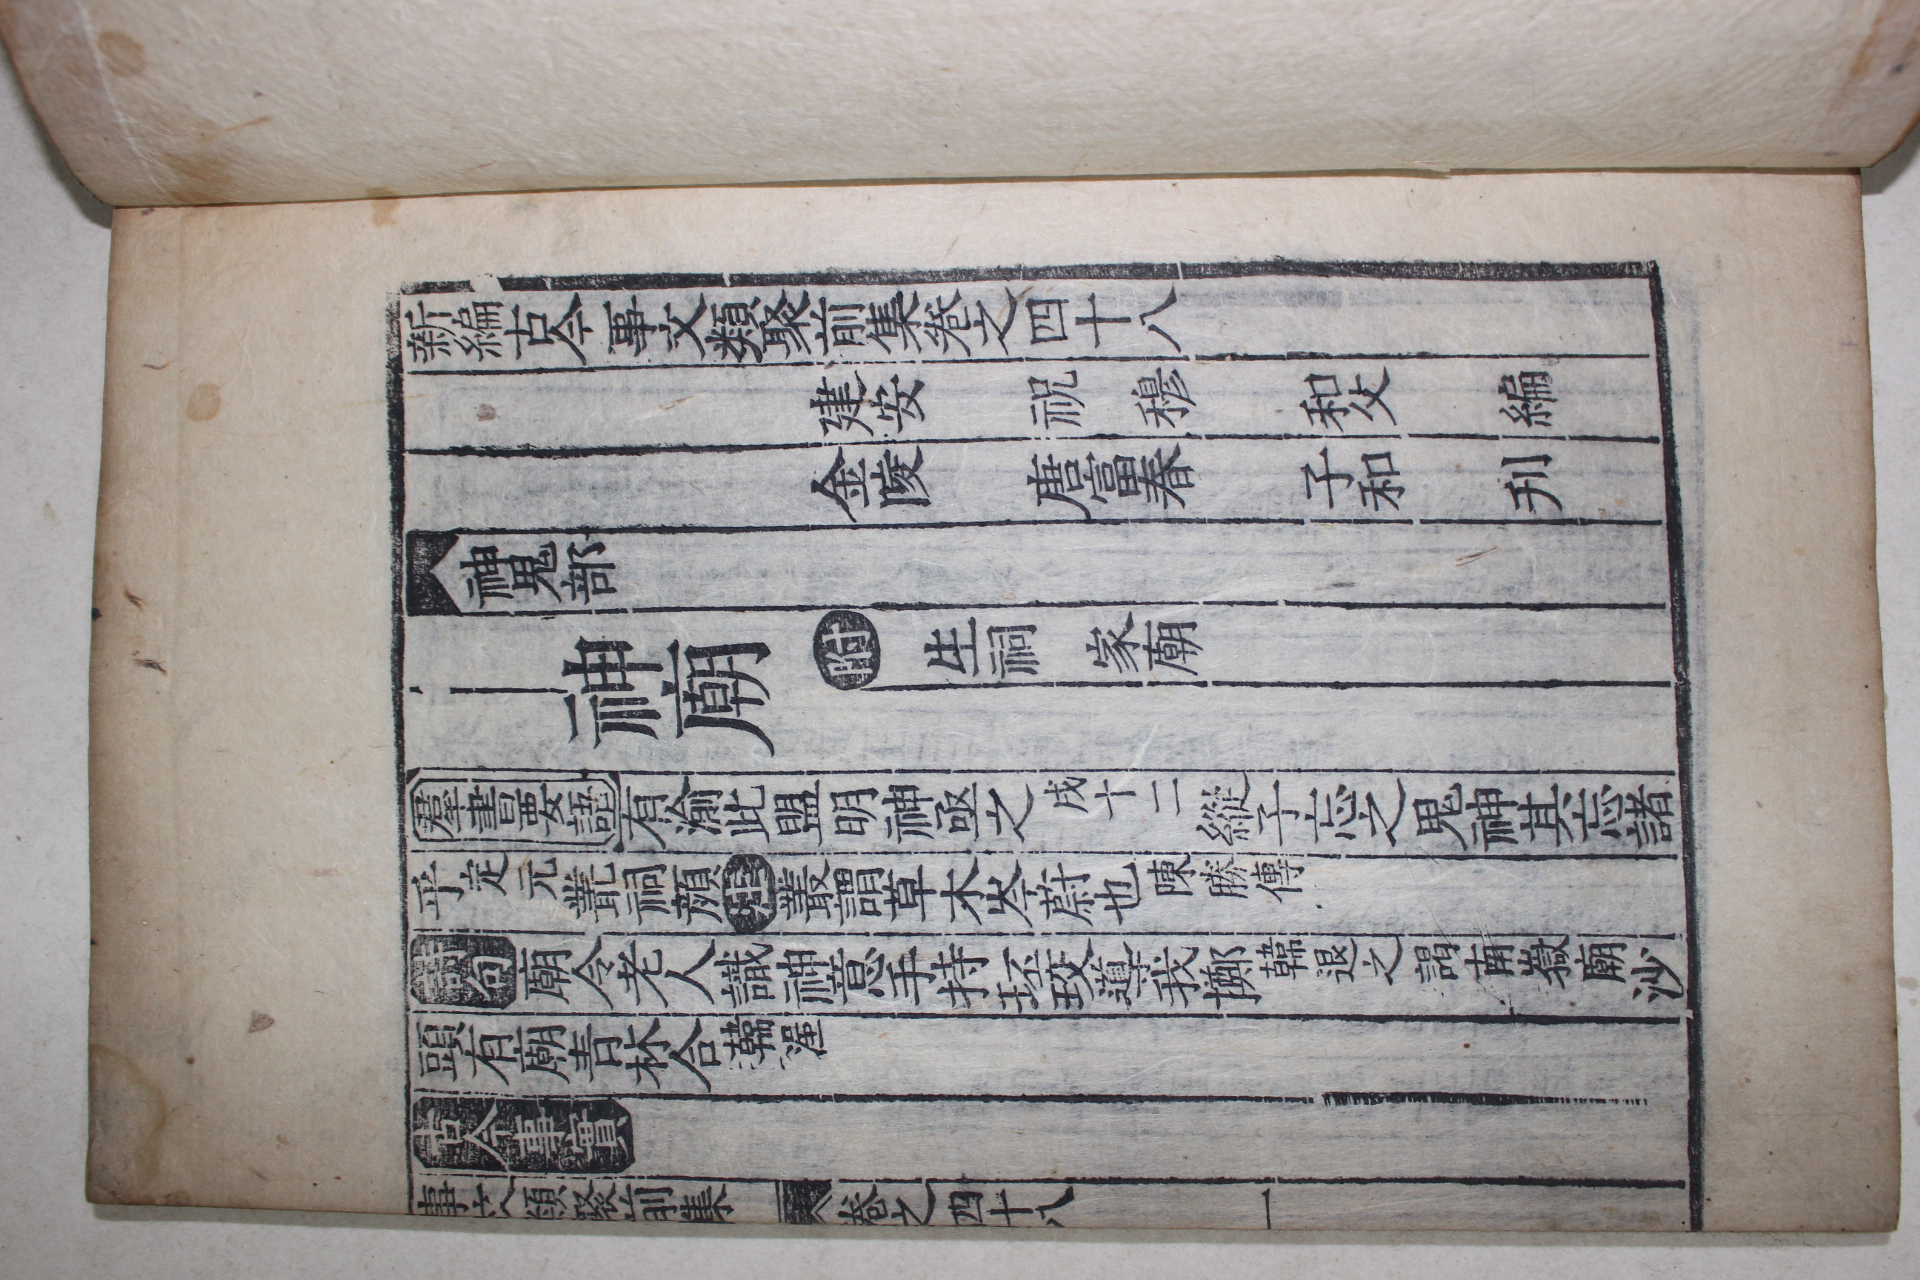 新編古今事文類聚前集卷之四十八
建安 祝穆 和父 編
金陵 唐富春 子和 刋
神鬼部
神廟 附 生祠 家廟
羣書要語 有渝此盟明神亟之 成十二 縱子忘之鬼神其忘諸
乎 定元 叢祠顔 叢謂草木岑蔚也 陳勝傳
詩句 廟令老人識神意手持盃珓導我擲 韓退之謁南嶽廟 沙
頭有廟青林合 韓渥
古今事實
事文類聚前集 卷之四十八 一